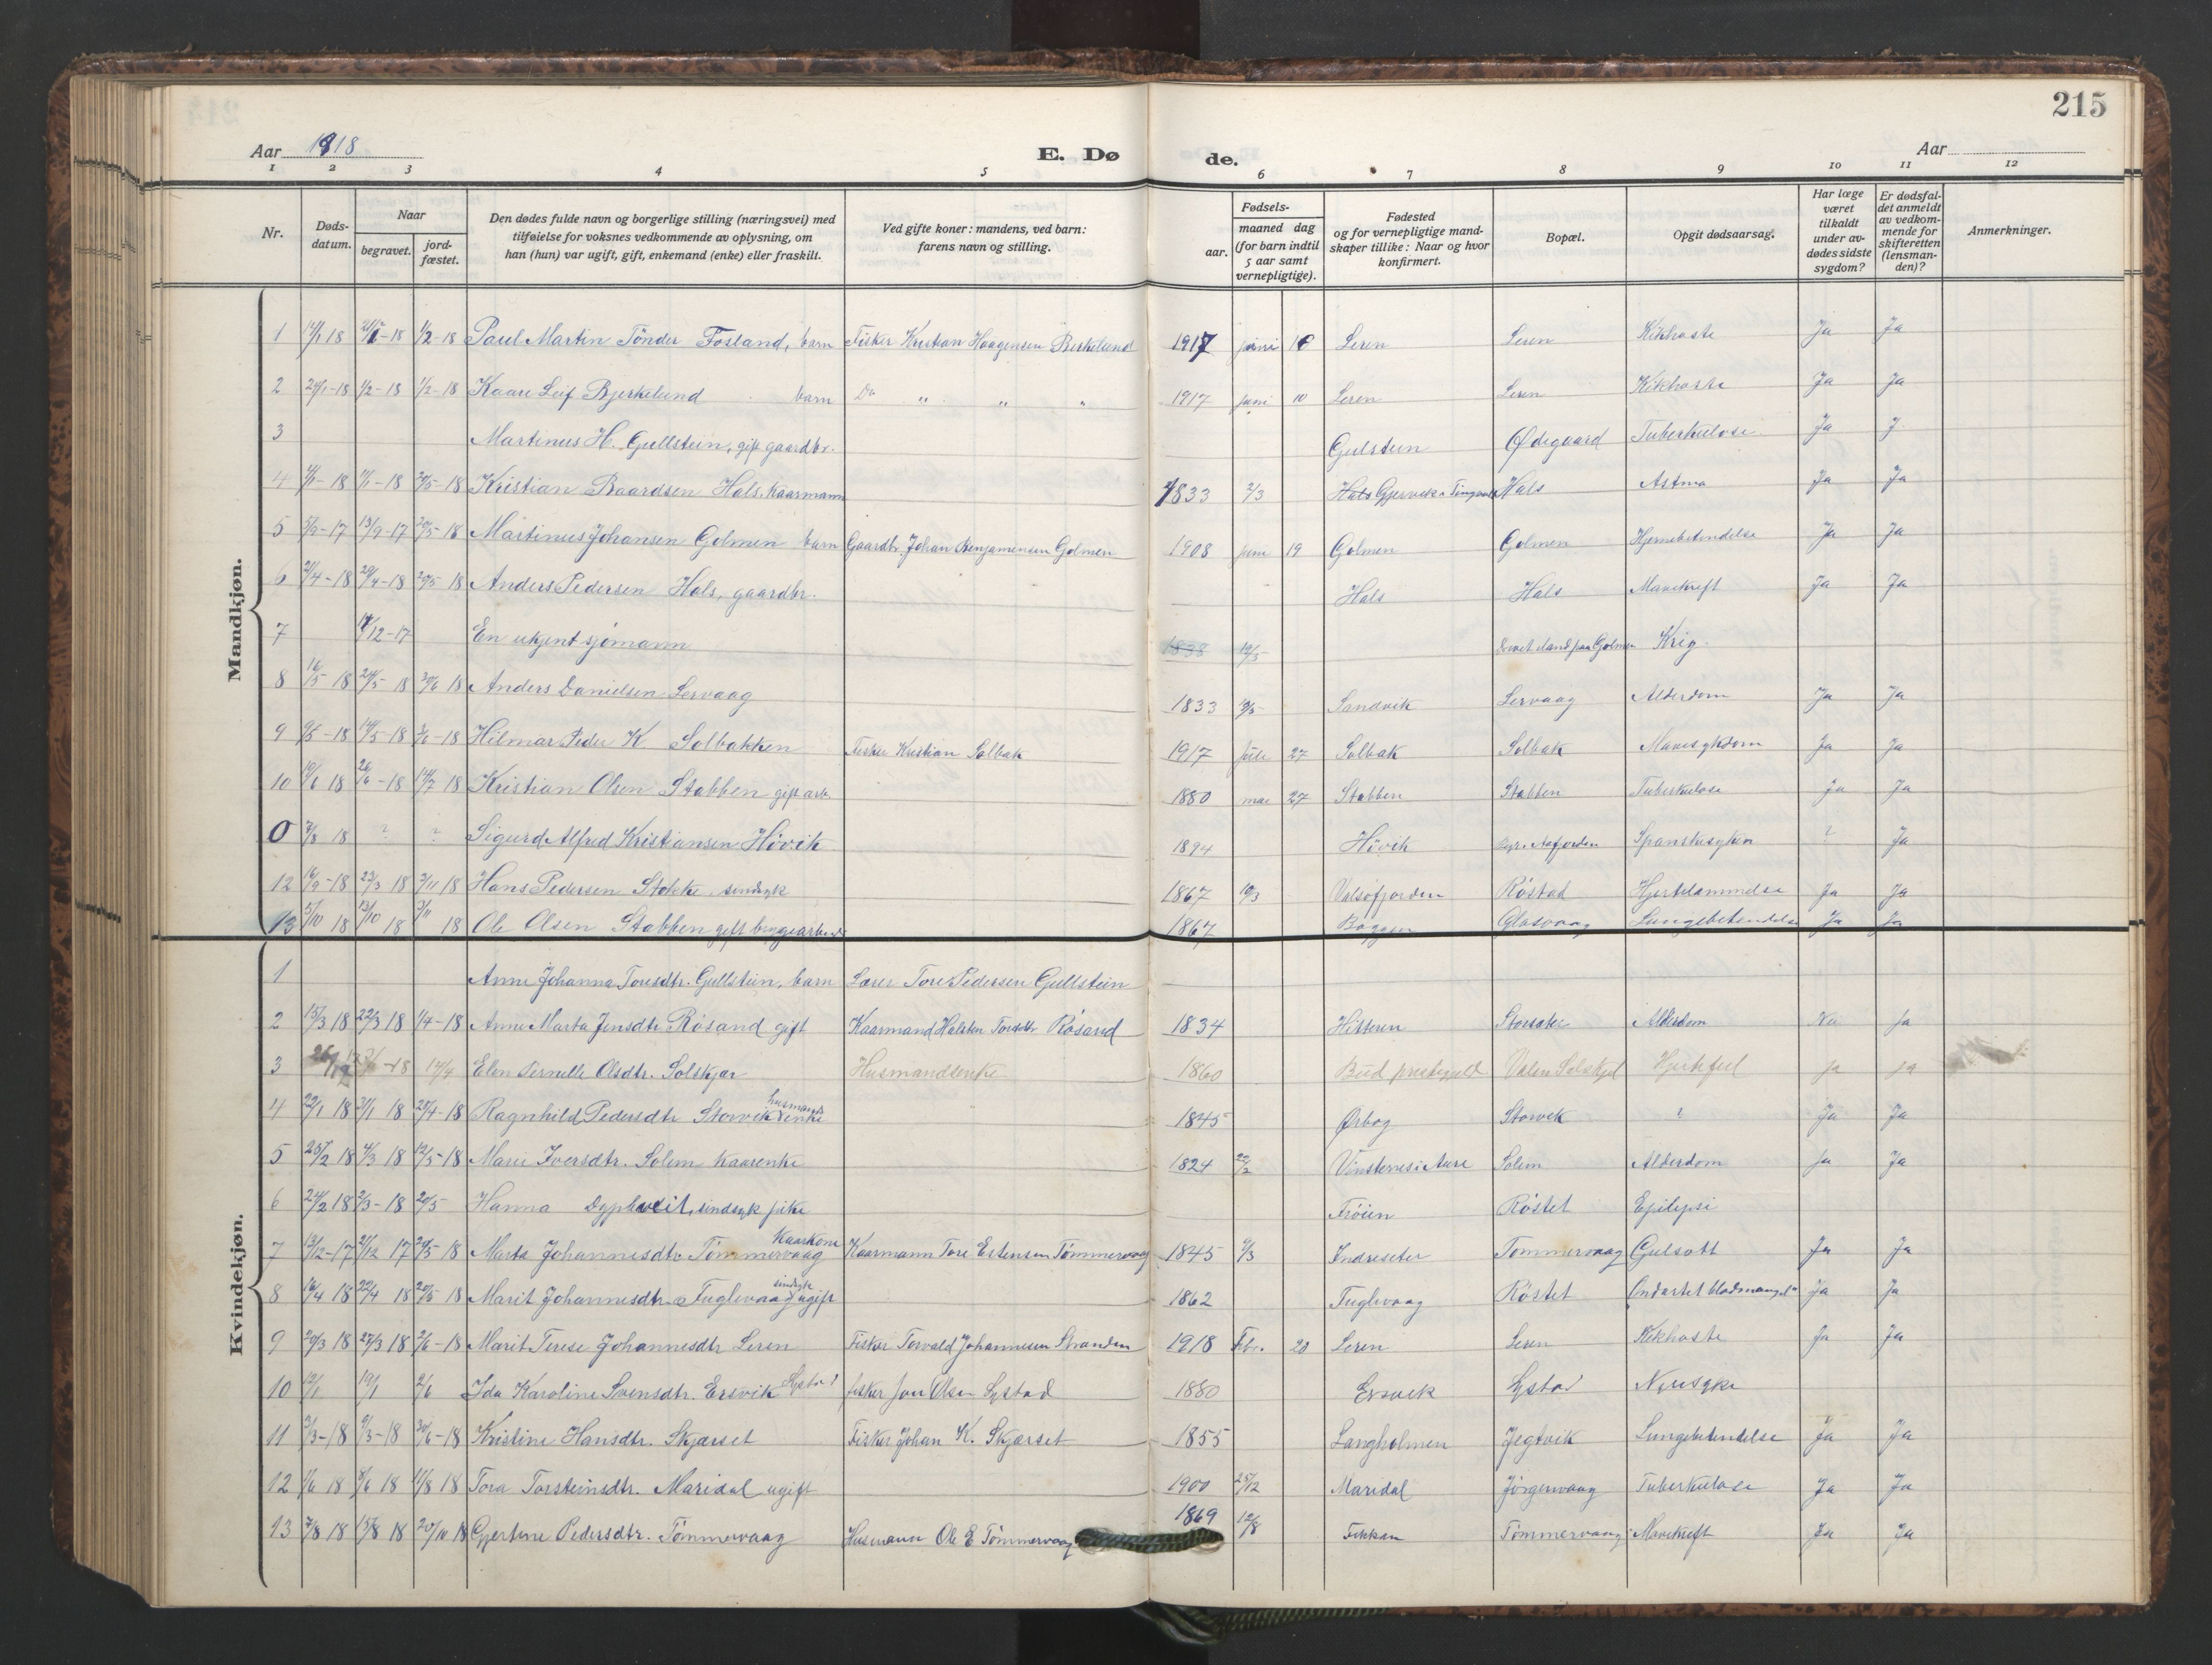 215
Aar 1918
E. Dø
de.
Aar
1 2 3 4 5 6 7 8 9 10 11 12
Nr.
Døds-
datum.
Naar
begravet.
jord-
fæstet.
Den dødes fulde navn og borgerlige stilling (næringsvei) med
tilføielse for voksnes vedkommende av oplysning, om
han (hun) var ugift, gift, enkemand (enke) eller fraskilt.
Ved gifte koner: mandens, ved barn:
farens navn og stilling.
Fødsels-
aar.
maaned dag
(for barn indtil
5 aar samt
vernepligtige).
Fødested
og for vernepligtige mand-
skaper tillike: Naar og hvor
konfirmert.
Bopæl.
Opgit dødsaarsag.
Har læge
været
tilkaldt
under av-
dødes sidste
sygdom?
Er dødsfal-
det anmeldt
av vedkom-
mende for
skifteretten
(lensman-
den)?
Anmerkninger.
Mandkjøn.
1 1/2-18 Paul Martin Tönder Fosland, barn Fisker Kristian Haagensen Berkelund 1917 juni Leren Leren Kikhoste Ja Ja
2 24/1-18 1/2-18 1/2-18 Kaare Leif Bjerkelund barn Do " " " 1917 juni 10 Leren Leren Kikhoste Ja Ja
3 Martinus H. Gullstein, gift gaardbr. Gulstein Ødegaard Tuberkulose Ja J.
4 Kristian Baardsen Hals, Kaarmann 1833 2/3 Hals Gjervik Hals Astma Ja Ja
5 5/9-17 13/9-17 20/5-18 Martinus Johansen Golmen barn Gaardbr. Johan Benjaminsen Golmen 1908 juni 19 Golmen Golmen Hjernebetendelse Ja Ja
6 21/4-18 29/4-18 20/5 18 Anders Pedersen Hals, gaardbr. Hals Hals Mavekreft Ja Ja
7 12-17 En ukjent sjömann 1838 Drevet iland paa Golmen Krig
8 16/5 18 24/5 18 18 Anders Danielsen Lervaag 1833 Sandvik Lervaag Alderdom Ja Ja
9 14/5-18 2/6-18 Hilmar Peder K. Solbakken Fisker Kristian Solbak 1917 juli 27 Solbak Solbak Mavesykdom Ja Ja
10 19/6 18 26/6-18 14/7 18 Kristian Olsen Stabben gift arb. 1880 mai 27 Stabben Stabben Tuberkulose Ja Ja
0 7/8 18 ? ? Sigurd Alfred Kristiansen Hövik 1894 Hövik Spanskesyken ? Ja
12 16/9-18 23/3 18 3/11 18 Hans Pedersen Stokke, sindsyk 1867 10/3 Valsöfjorden Röstad Hjertelammelse Ja Ja
13 5/10 18 13/10 18 3/11 18 Ole Olsen Stabben gift bryggearbeider 1867 Glasvaag Lungebetendelse Ja Ja
Kvindekjøn.
1 Anne Johanna Toresdtr. Gullstein, barn Lærer Tore Pedersen Gullstein
2 15/3 18 22/3 18 1/4-18 Anne Marta Jensdtr. Rösand gift Kaarmand Rösand 1834 Hitteren Storsæter Alderdom Nei Ja
3 14/4 Elen Pernille Olsdtr. Solskjær Husmandsenke 1860 Bud prestegjeld Valen Solskjel Hjertefeil Ja Ja
4 22/1 18 31/1 18 25/4-18 Ragnhild Pedersdtr Storvik husmandsenke 1845 Ørbog Storvik ? Ja Ja
5 25/2 18 4/3 18 12/5-18 Marie Iversdtr. Solem Kaarenke 1824 22/2 Vinsternes i Aure Solem Alderdom Ja Ja
6 24/2 18 2/3-18 20/5 Hanna Dyplveit, sindsyk pike Fröien Röstet Epilepsi
7 13/12-17 21/12 17 20/5-18 Marta Johannesdtr Tömmervaag Kaarkone Kaarmann Tore Estensen Tömmervaag 1845 9/3 Indreseter Tömmervaag Gulsott Ja Ja
8 16/4 18 22/4 18 20/5 18 Marit Johannesdtr. Fuglevaag sindsyk ugift 1862 Fuglevaag Röstet Ondartet blodmangel Ja Ja
9 20/3 18 27/3 18 2/6-18 Marit Terese Johannesdtr Leren Fisker Torvald Johannesen Stranden 1918 Febr. 20 Leren Leren Kikhoste Ja Ja
10 12/1 19/1 2/6 Ida Karoline Svensdtr. Ersvik Lystad fisker Jon Olsen Lystad 1880 Ersvik Lystad Nyresyke
11 3/3-18 9/3-18 30/6-18 Kristine Hansdtr. Skjærset Fisker Johan K. Skjærset 1855 Langholmen Jegtvik Lungebetendelse Ja Ja
12 1/6 18 8/6 18 11/8 18 Tora Torsteinsdtr. Maridal ugift 1900 25/12 Maridal Jörgervaag Tuberkulose Ja Ja
13 7/8 18 15/8 18 20/10 18 Gjertine Pedersdtr. Tömmervaag Husmann Ole E Tömmervaag 1869 12/8 Fikkan Tömmervaag Mavekreft Ja Ja